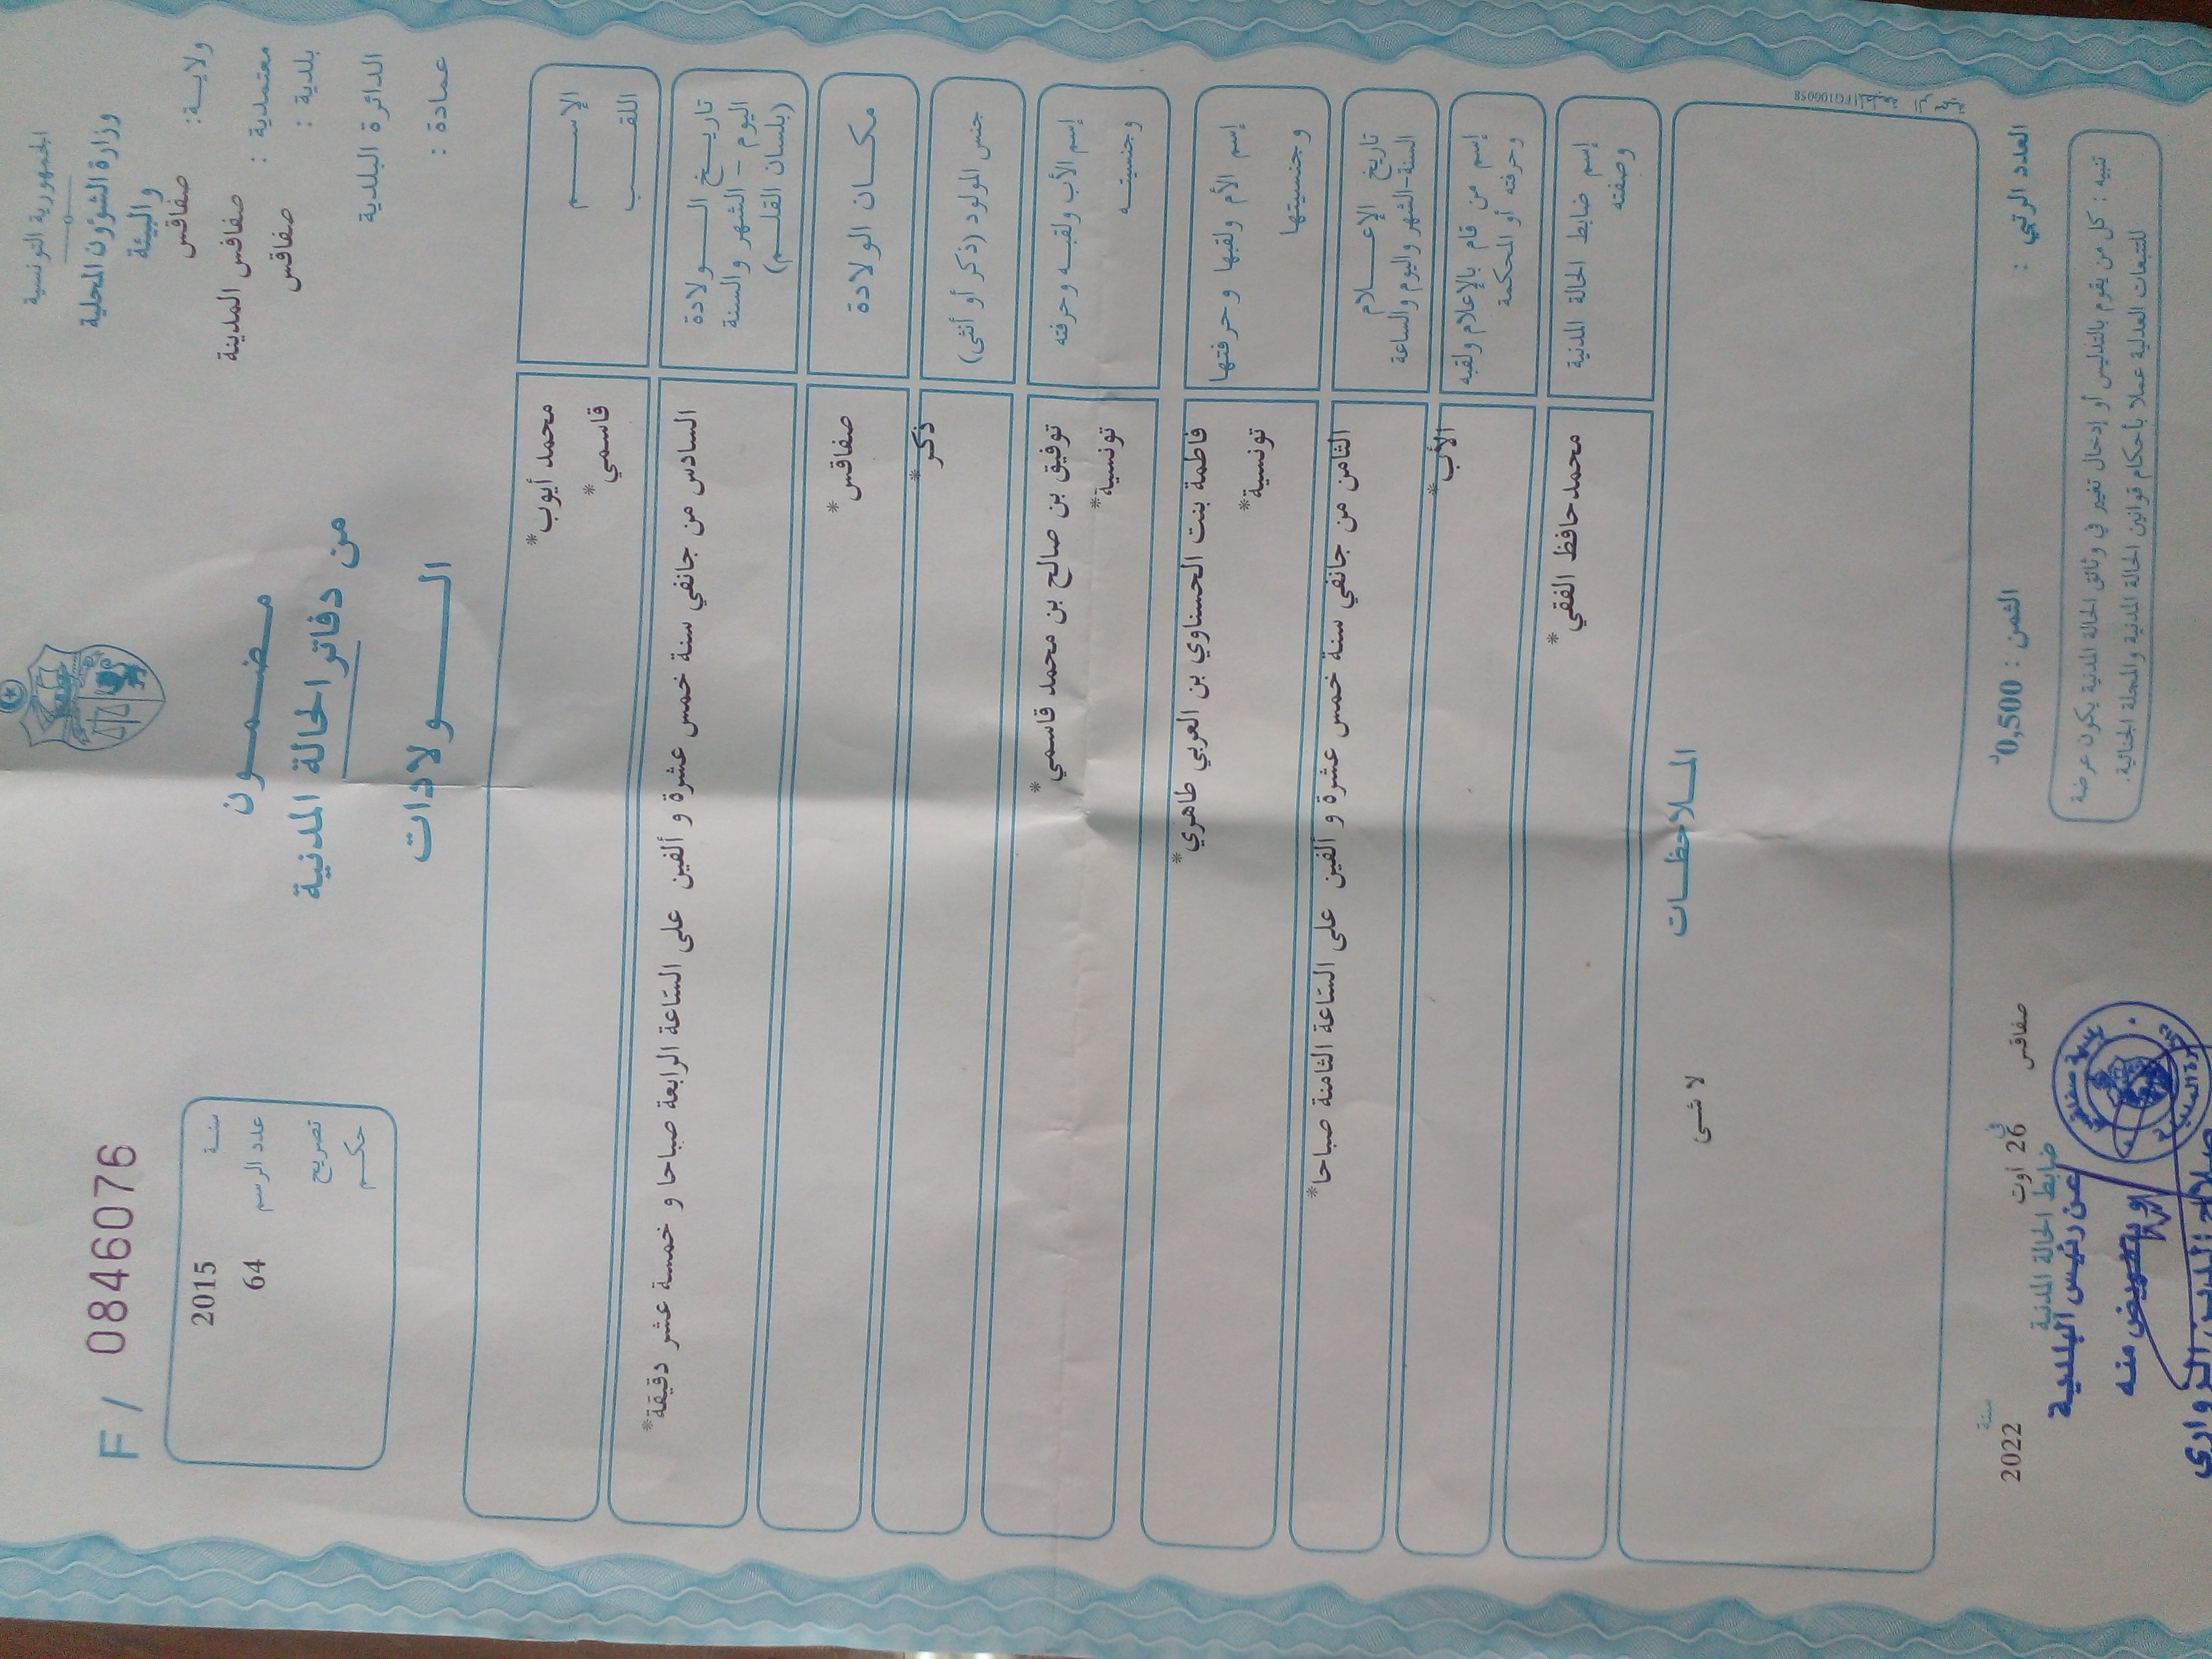 الجمهورية التونسية
وزارة الشؤون المحلية
والبيئة
ولايـة: صفاقس
معتمدية : صفاقس المدينة
بلدية : صفاقس
الدائرة البلدية
عمادة :
مضمــون
من دفاتر الحالة المدنية
الـــولادات
F / 0846076
سنـة 2015
عدد الرسم 64
تصريح
حكـم
الإســـم محمد أيوب*
اللقـــب قاسمي*
تاريـــخ الـــولادة
اليوم – الشهر والسنة
(بلسان القلـــم)
السادس من جانفي سنة خمس عشرة و ألفين على السّاعة الرابعة صباحا و خمسة عشر دقيقة*
مكـــان الولادة صفاقس*
جنس المولود (ذكر أو أنثى) ذكر*
إسم الأب ولقبـه وحرفته توفيق بن صالح بن محمد قاسمي*
وجنسيتـــه تونسية*
إسم الأم ولقبها وحرفتها فاطمة بنت الحسناوي بن العربي طاهري*
وجنسيتها تونسية*
تاريخ الإعـــلام
السنة-الشهر واليوم والساعة
الثامن من جانفي سنة خمس عشرة و ألفين على السّاعة الثامنة صباحا*
إسم من قام بالإعلام ولقبه
وحرفته أو المحكمة
الأب*
إسم ضابط الحالة المدنية
وصفته
محمد حافظ الفقي*
المـلاحظـــات
لا شىء
العدد الرتبي :
الثمن : 0,500د
صفاقس في 26 أوت سنة 2022
ضابط الحالة المدنية
عن رئيس البلدية
وبتفويض منه
صلاح الدين الزواري
تنبيه : كل من يقوم بالتدليس أو إدخال تغيير في وثائق الحالة المدنية يكون عرضة
للتتبعات العدلية عملا بأحكام قوانين الحالة المدنية والمجلة الجنائية.